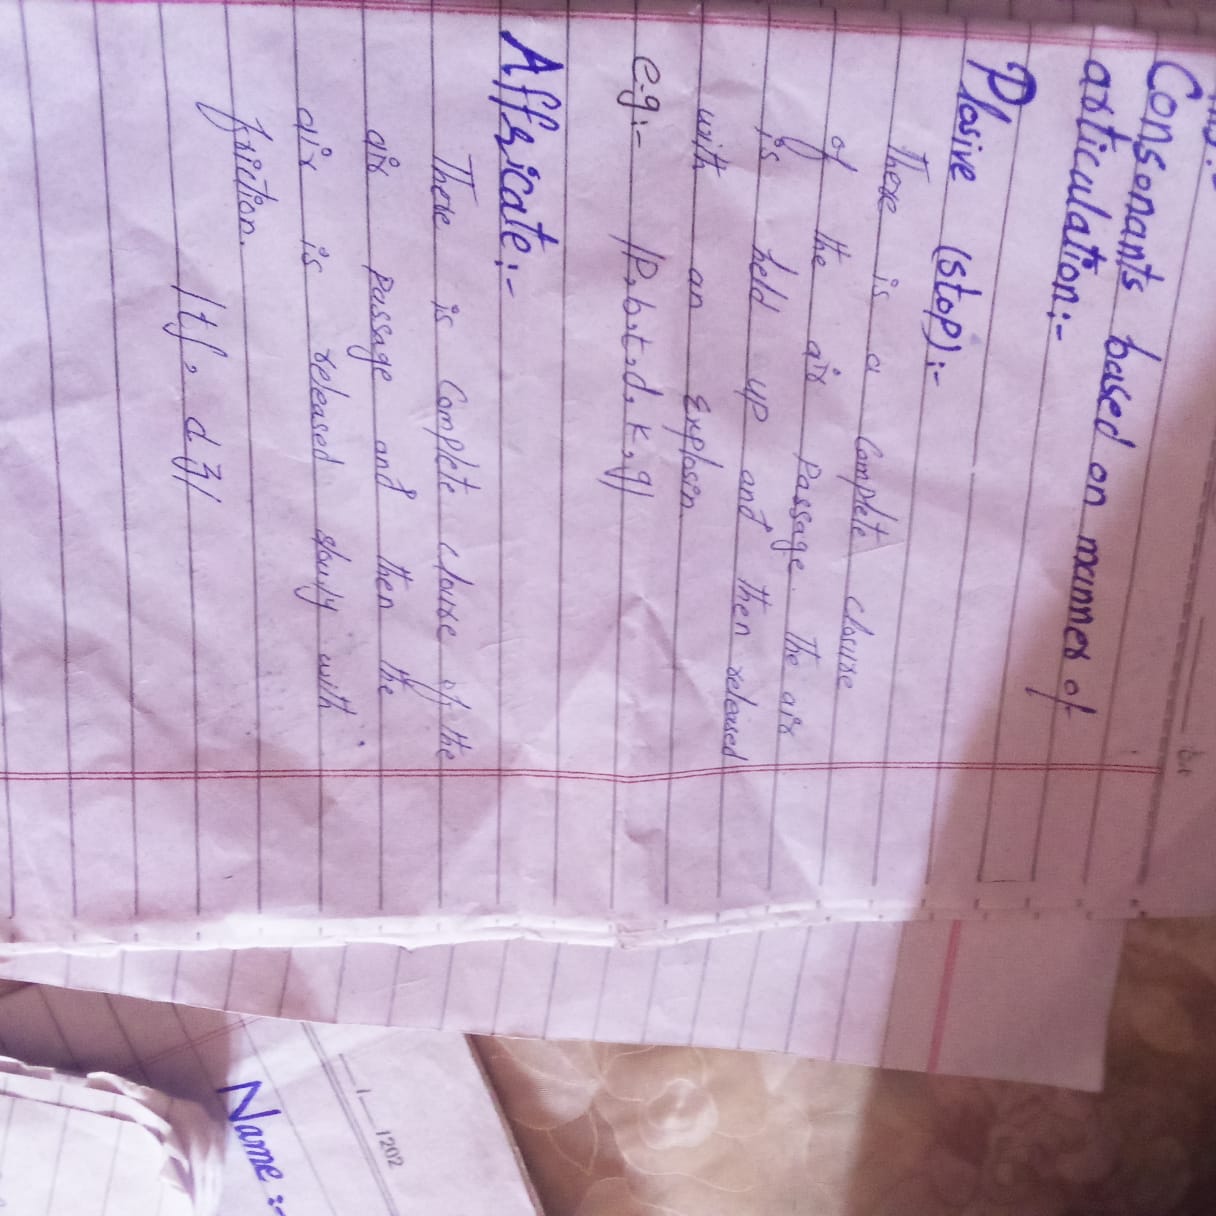 Consonants based on manner of
articulation:-
Plosive (stop):-
There is a complete closure
of the air passage. The air
is held up and then released
with an explosn
e.g:- /P,b,t,d,k,g/
Affricate:-
There is complete closure of the
air passage and then the
air is released slowly with
friction.
/tʃ, dʒ/
Name :-
1202